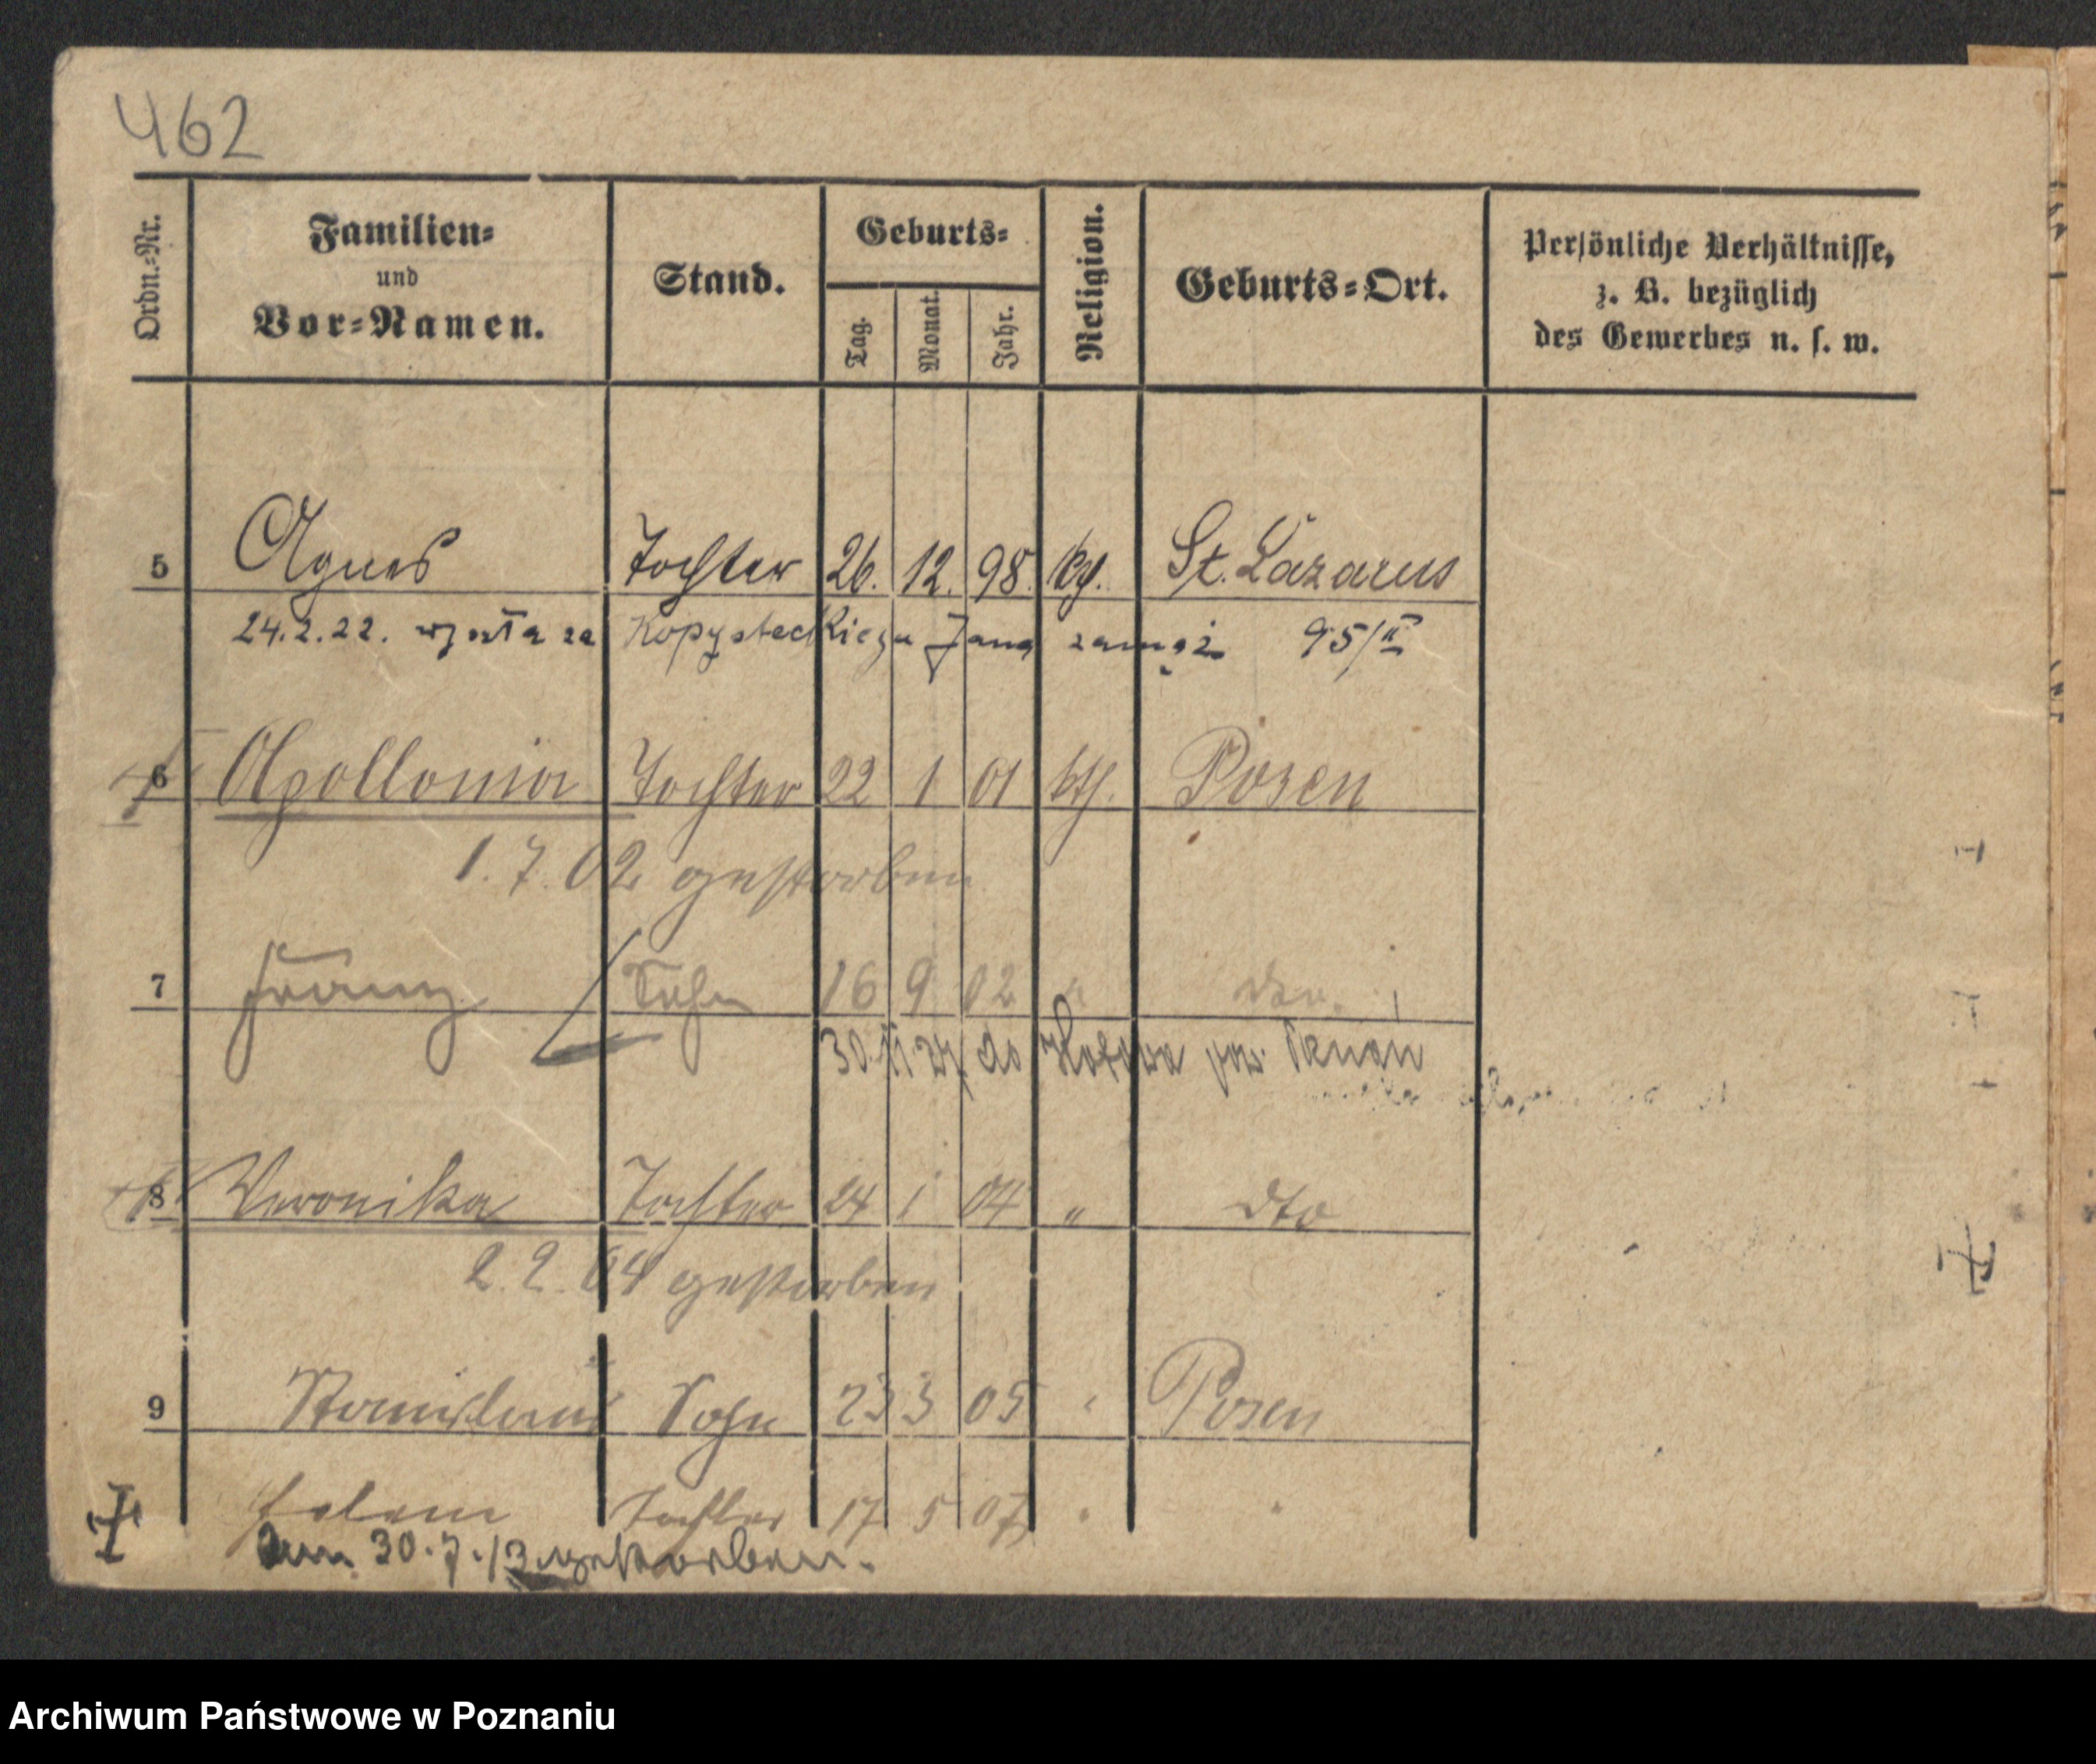 462
Ordn.-Nr. Familien- und Vor-Namen. Stand. Geburts- Tag. Monat. Jahr. Religion. Geburts-Ort. Persönliche Verhältnisse, z. B. bezüglich des Gewerbes u. s. w.
5 Agnes Tochter 26. 12. 98. kth. St. Lazarus
24.2.22. wyszła za Kopysteckiego Jana zamąż 95/II
6 Apollonia Tochter 22 1 01 kth. Posen
1.7.02 gestorben
7 Franz Sohn 16 9 02 " dto.
30.11.27 do pow. Poznań
8 Veronika Tochter 24 1 04 " dto
2.2.04 gestorben
9 Stanislaus Sohn 23 3 05 " Posen
Helene Tochter 17 5 07 " "
am 30.7.13 gestorben.
Archiwum Państwowe w Poznaniu